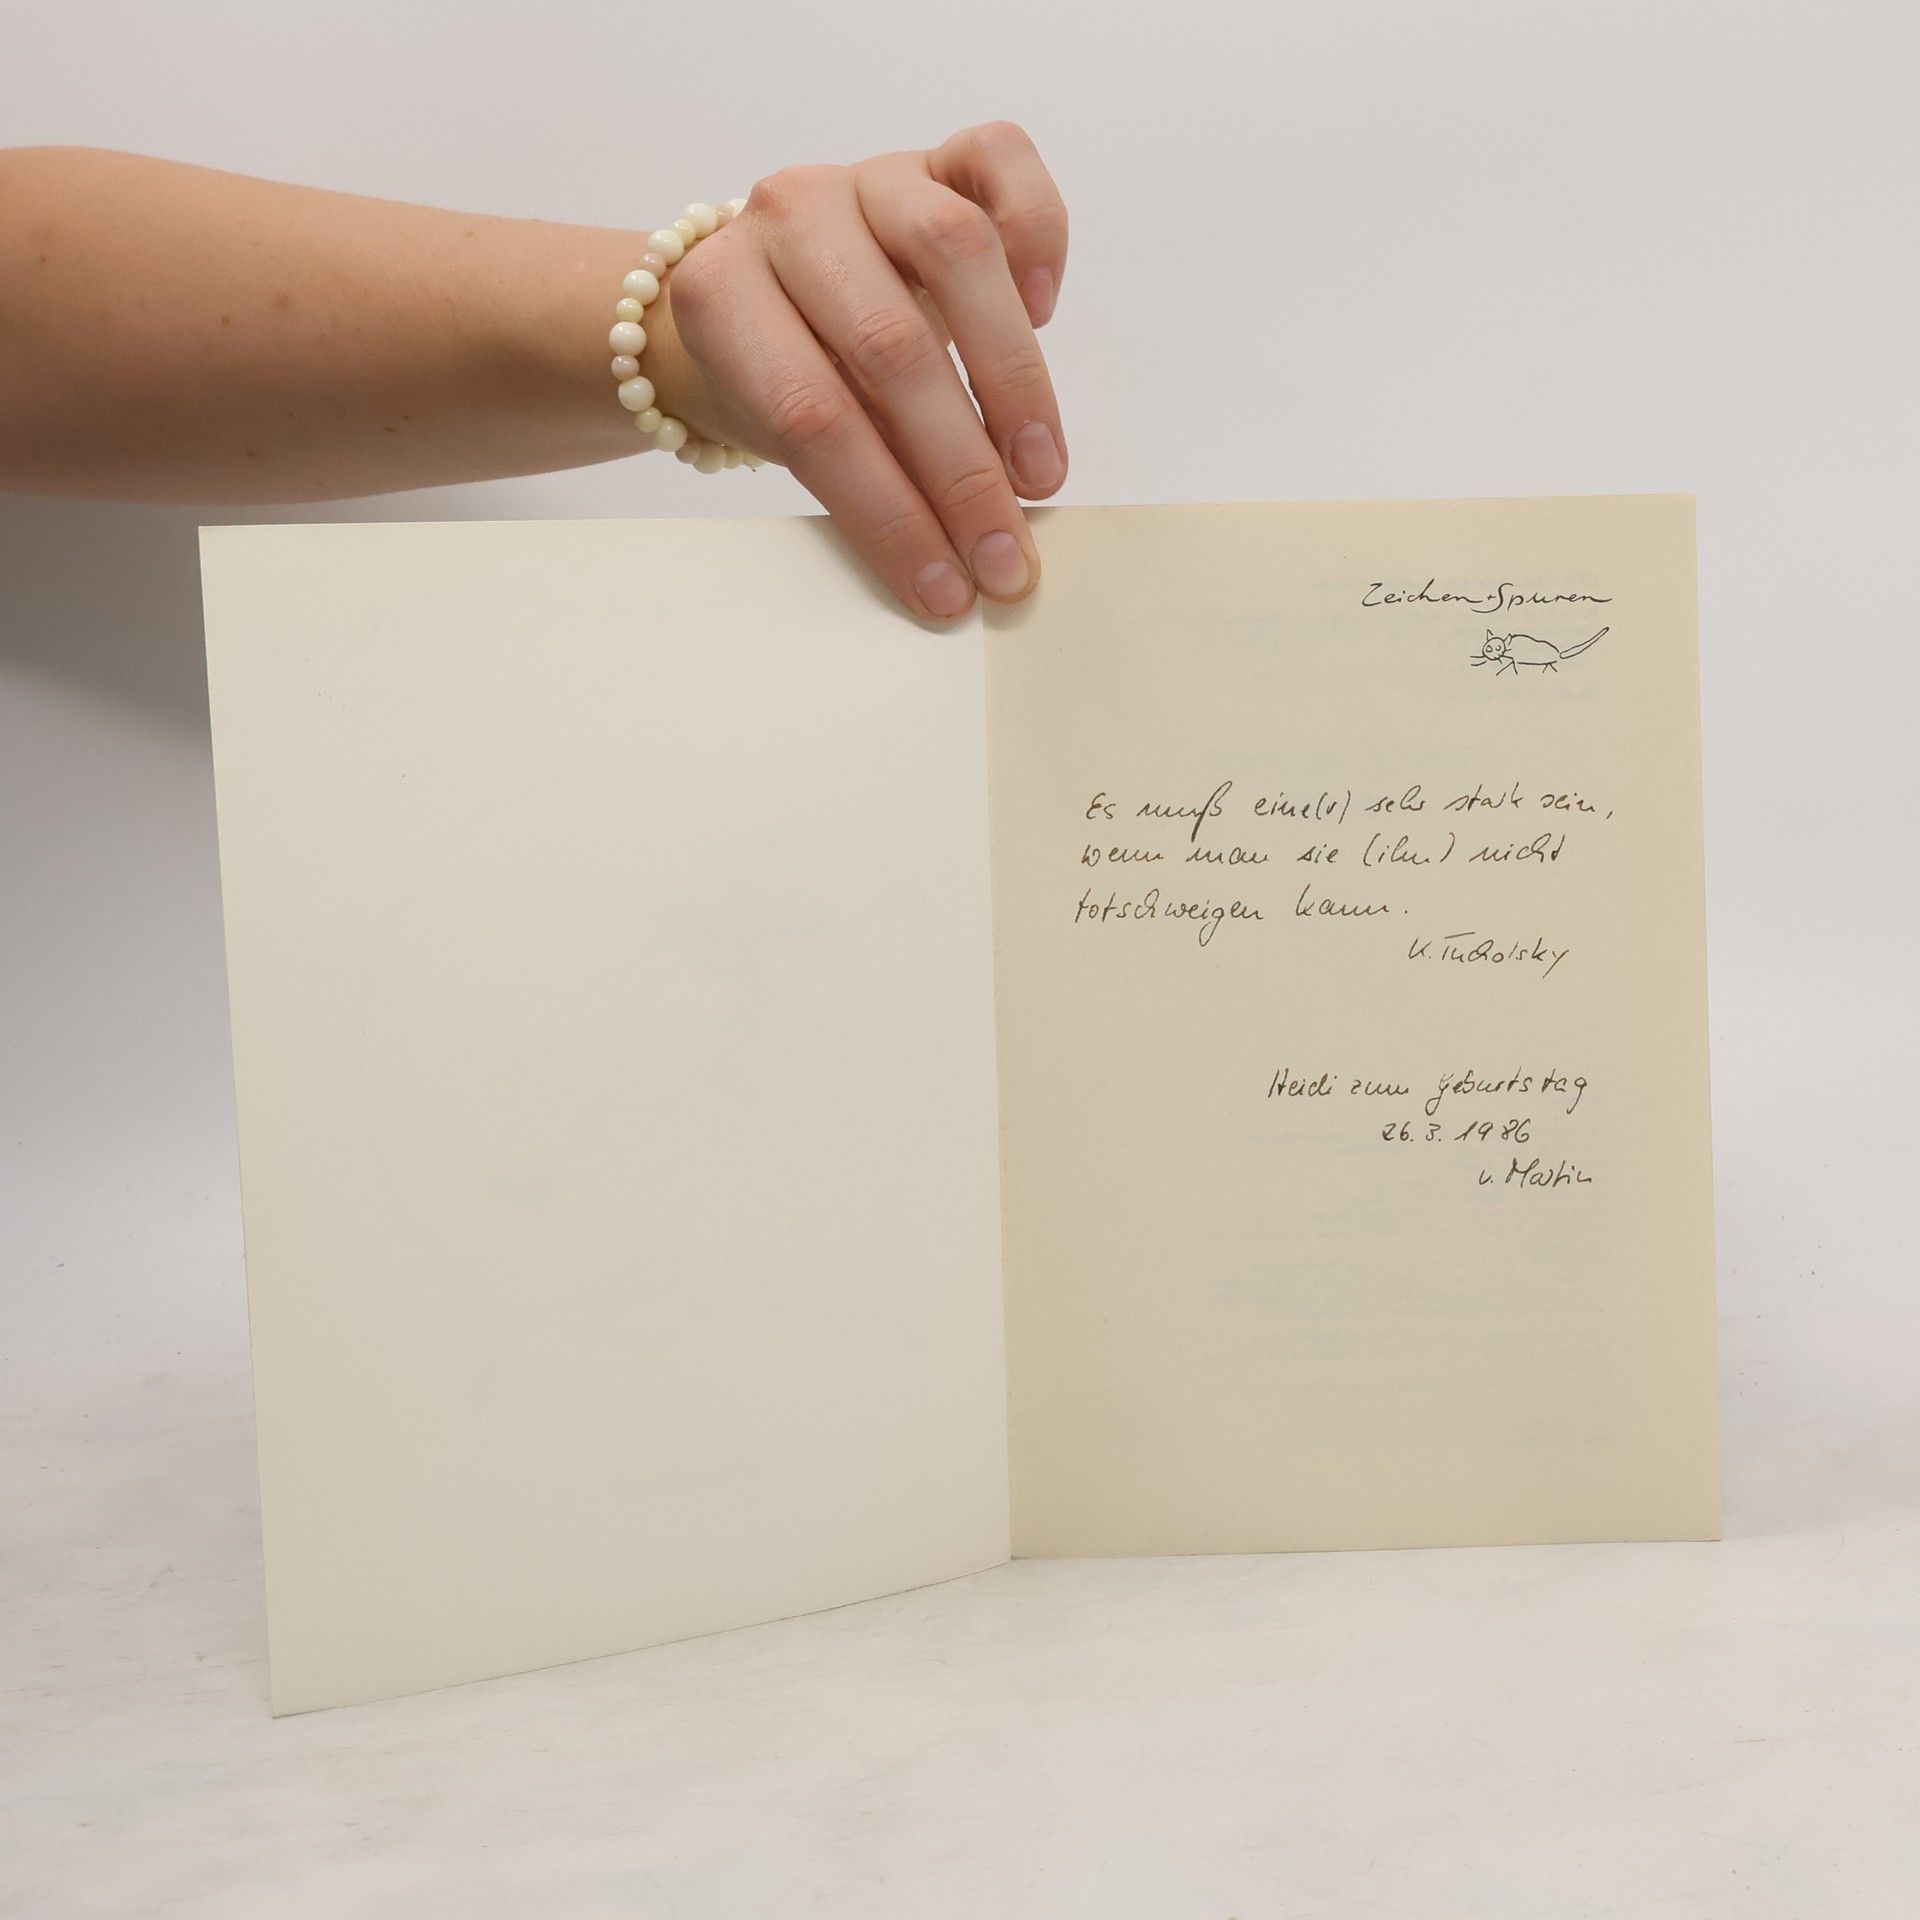 Zeichen + Spuren
Es muß eine(r) sehr stark sein,
wenn man sie (ihn) nicht
totschweigen kann.
K. Tucholsky
Heidi zum Geburtstag
26. 3. 1986
v. Martin